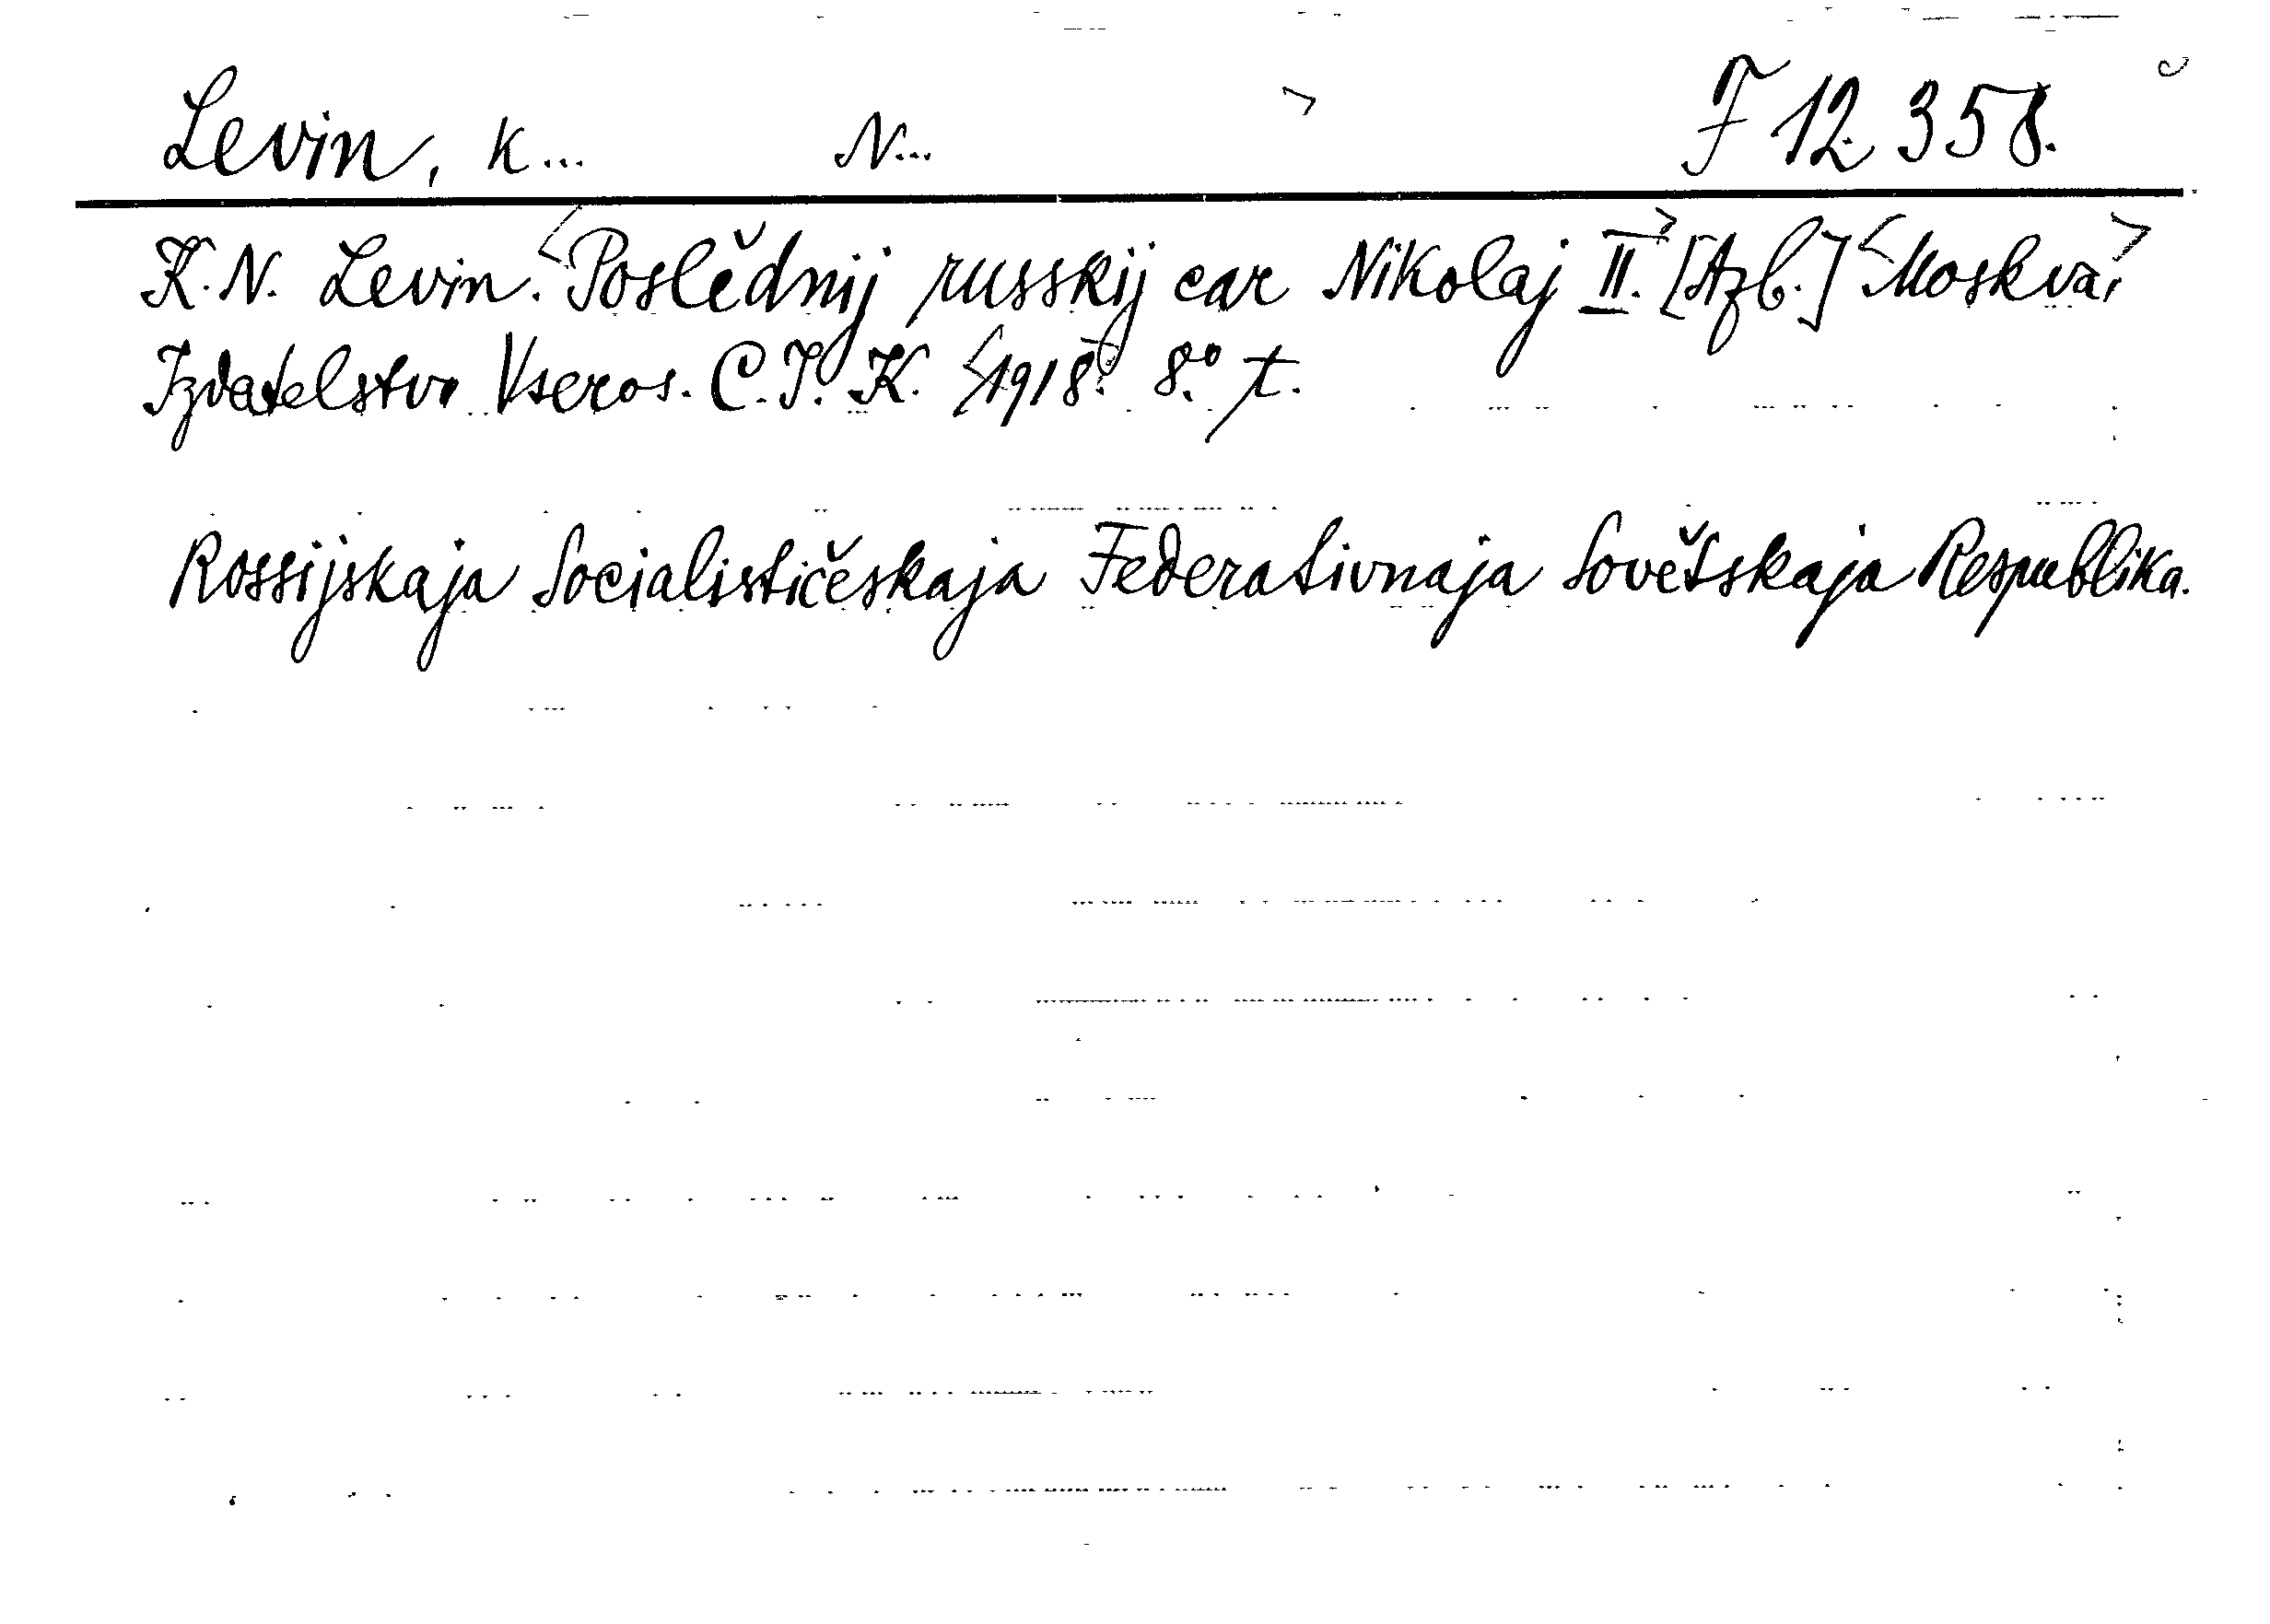 Levin, K... N... F 12.358.
K. N. Levin. <Poslědnij russkij car Nikolaj II.> [Azb.] <Moskva,>
Izdatelstvo Vseros. C. I. K. <1918.> 8.° t.
Rossijskaja Socialističeskaja Federativnaja Sovětskaja Respublika.